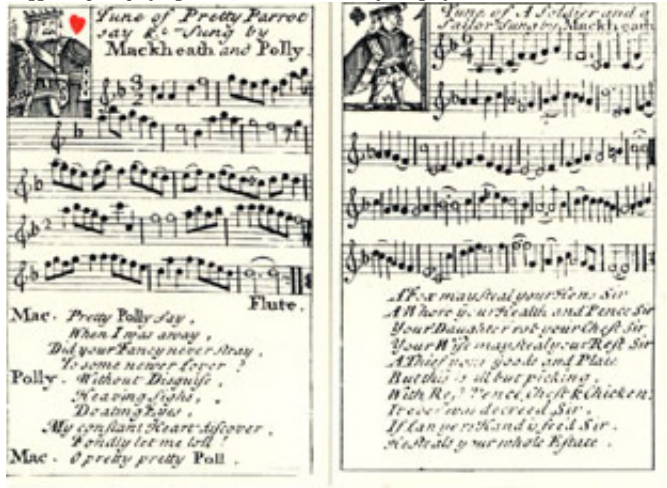 Tune of Pretty Parrot
say &c. Sung by
Mackheath and Polly.
Flute.
Mac. Pretty Polly say,
When I was away,
Did your Fancy never stray,
To some newer Lover?
Polly. Without Disguise,
Heaving Sighs,
Doating Eyes,
My constant Heart discover,
Fondly let me loll!
Mac. O pretty pretty Poll.
Tune of A Soldier and a
Sailor Sung by Mackheath
A Fox may steal your Hens Sir
A Whore your Health and Pence Sir
Your Daughter rob your Chest Sir
Your Wife may steal your Rest Sir
A Thief your goods and Plate
But this is all but picking,
With Rest Pence, Chest & Chicken:
It ever was decreed Sir.
If Lawyers Hand is feed Sir.
He steals your whole Estate.